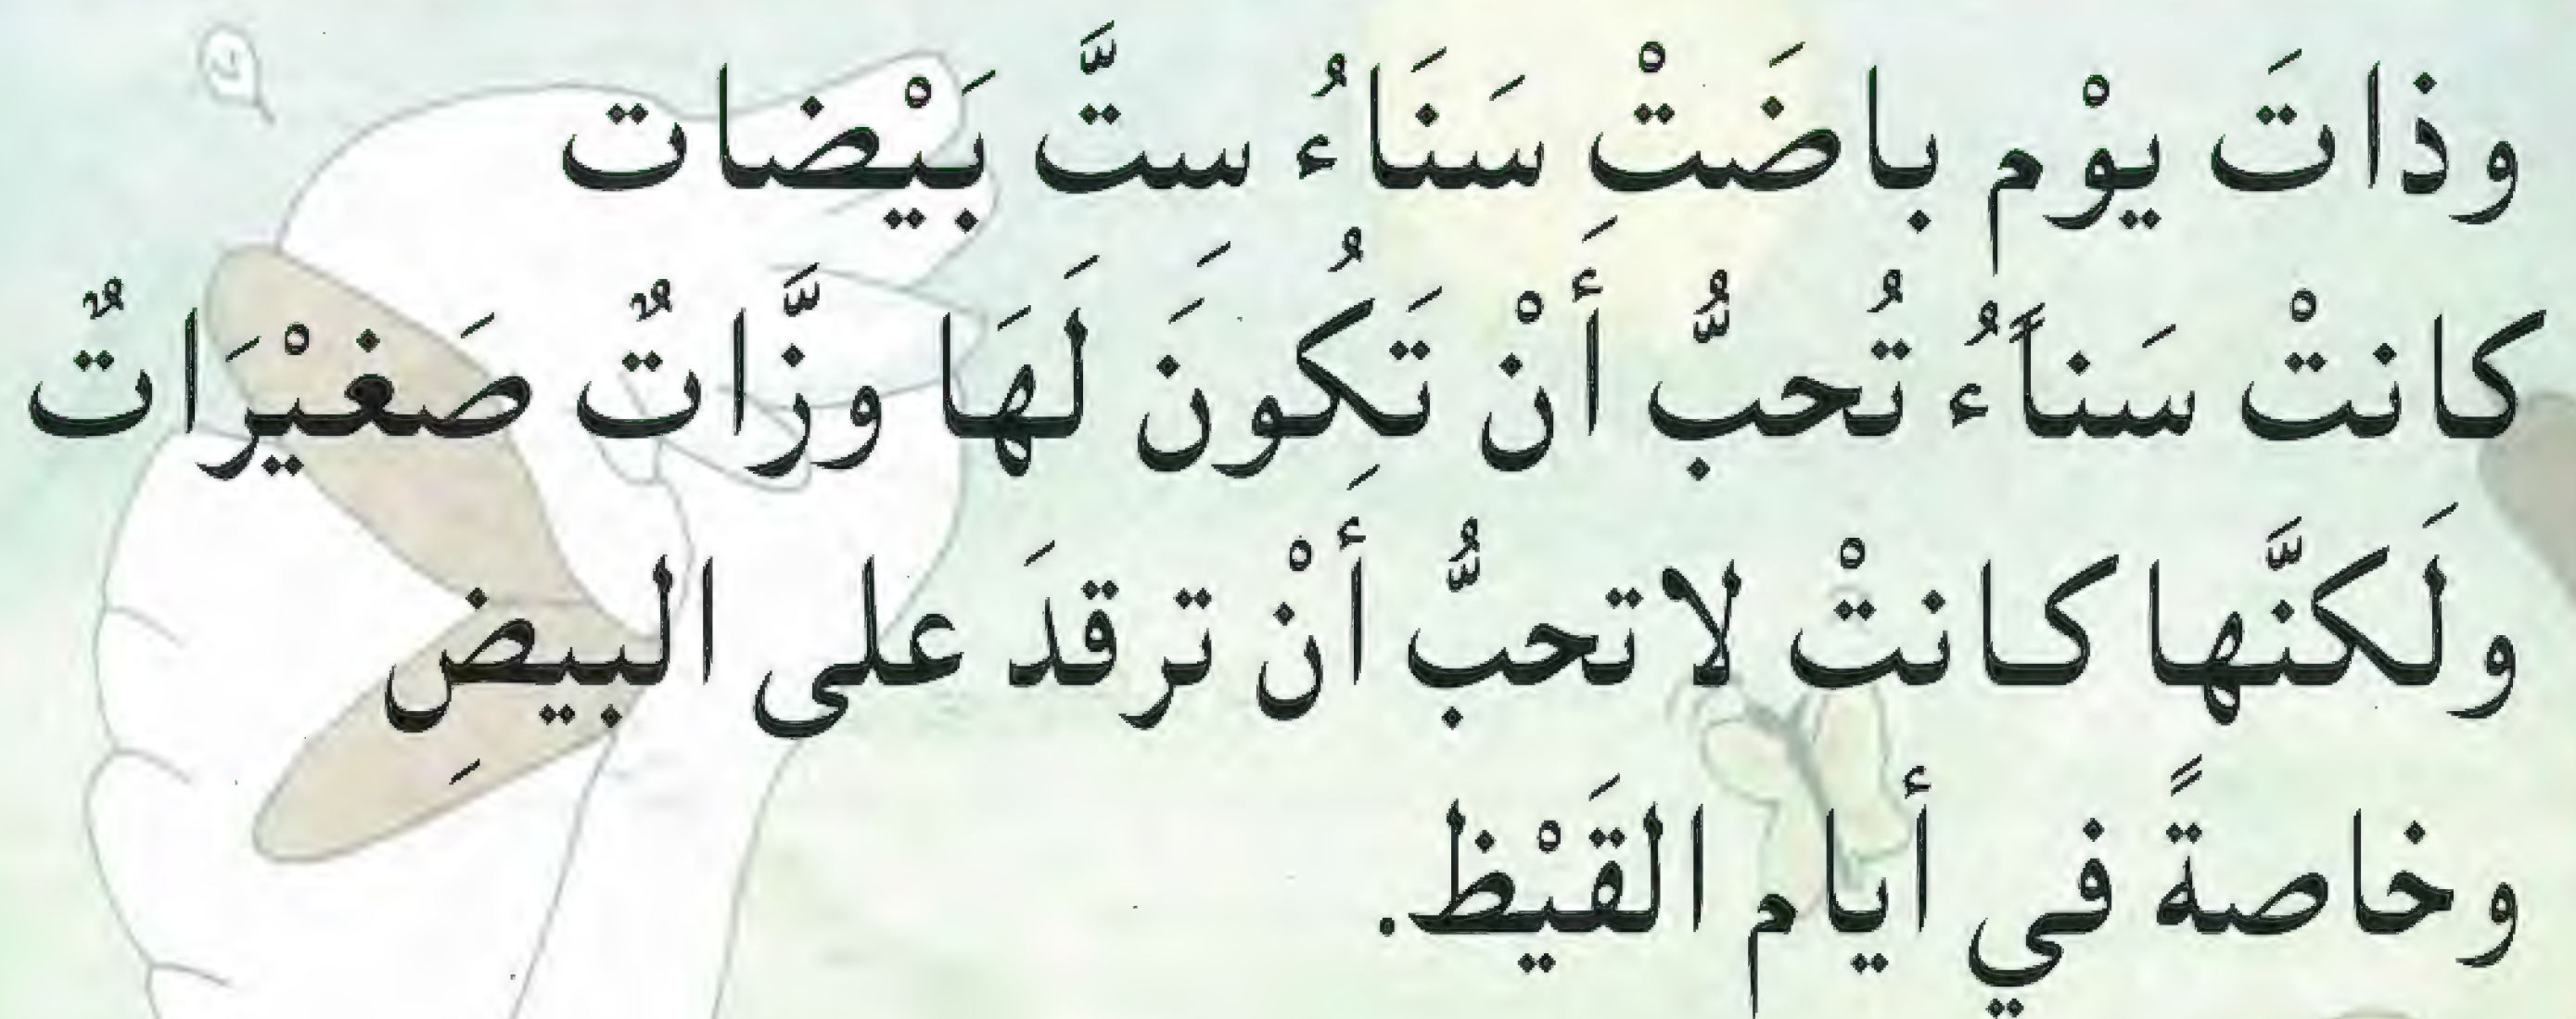 وذاتَ يوْم باضَتْ سَنَاءُ ستَّ بَيْضات
كانتْ سَناءُ تُحبُّ أَنْ تَكُونَ لَهَا وزَّاتٌ صَغيْرَاتٌ
ولَكنَّها كانتْ لا تحبُّ أَنْ ترقدَ على البيضِ
وخاصةً في أيام القَيْظ.